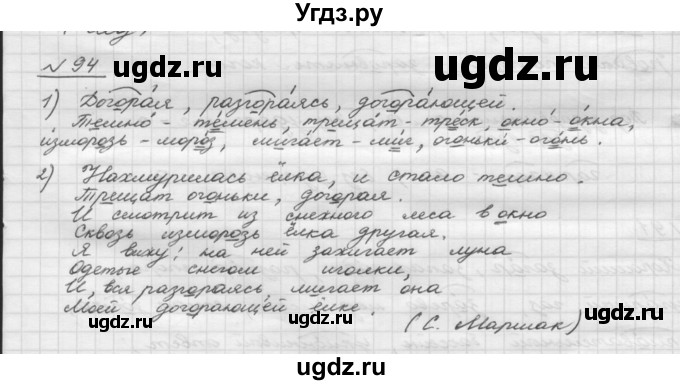 Угдз.ру
№ 94
uгдз.ru
uгдз.ru
1) Догорая, разгораясь, догорающей.
Темно́ - те́мень, трещат - треск, окно́ - о́кна,
изморозь - моро́з, мигает - миг, огоньки - ого́нь.
2) Нахмурилась ёлка, и стало темно.
Трещат огоньки, догорая.
И смотрит из снежного леса в окно
Сквозь изморозь ёлка другая.
Я вижу: на ней зажигает луна
Одетые снегом иголки,
И, вся разгораясь, мигает она
Моей догорающей ёлке.
(С. Маршак)
uгдз.ru
uгдз.ru
uгдз.ru